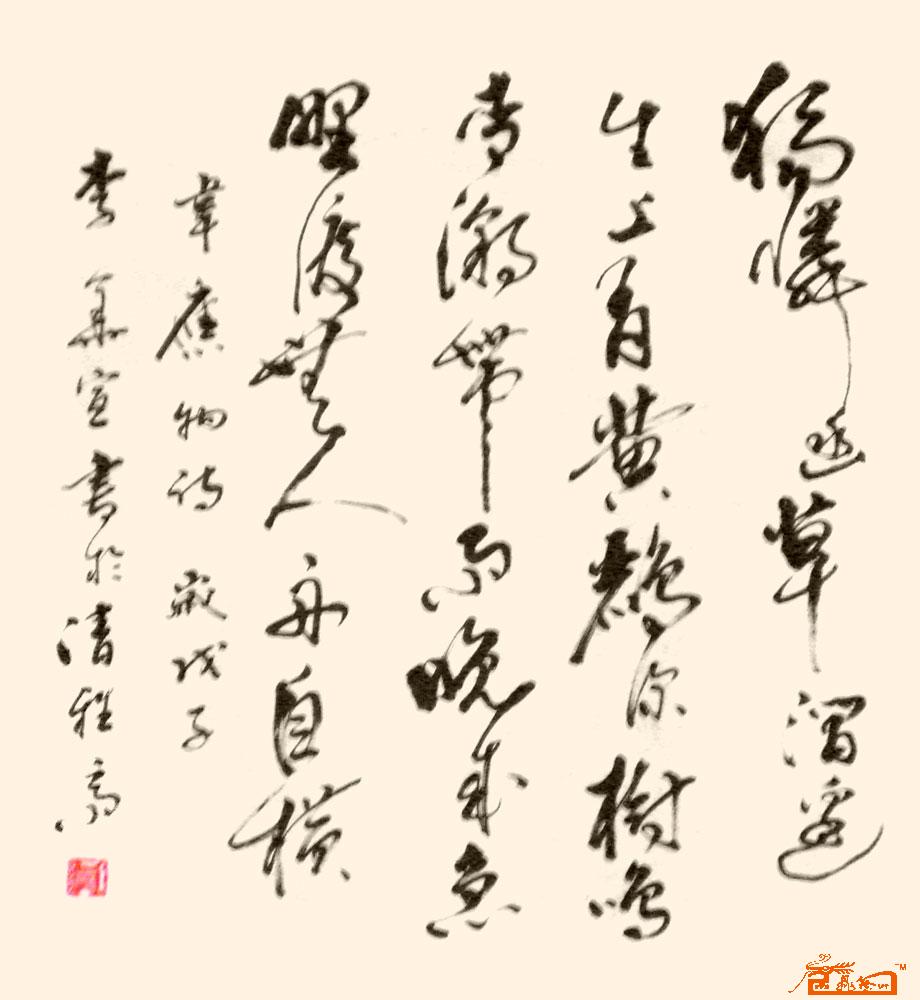 獨憐幽草澗邊
生上有黄鸝深樹鳴
春潮帶雨晚來急
野渡無人舟自橫
韋應物詩 歲戊子
李 宣書於清雅斋